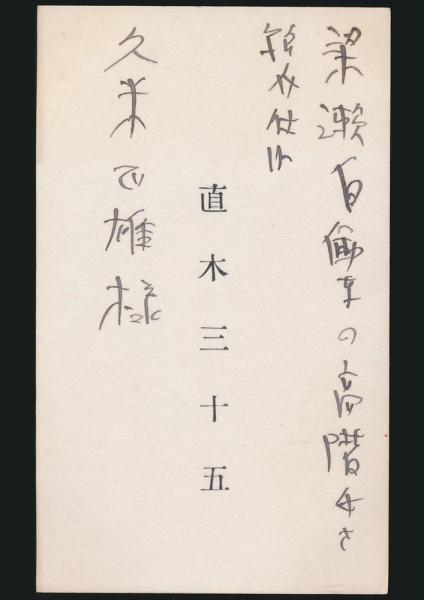 梁瀬自働車の高階
紹介仕
直木三十五
久米正雄様